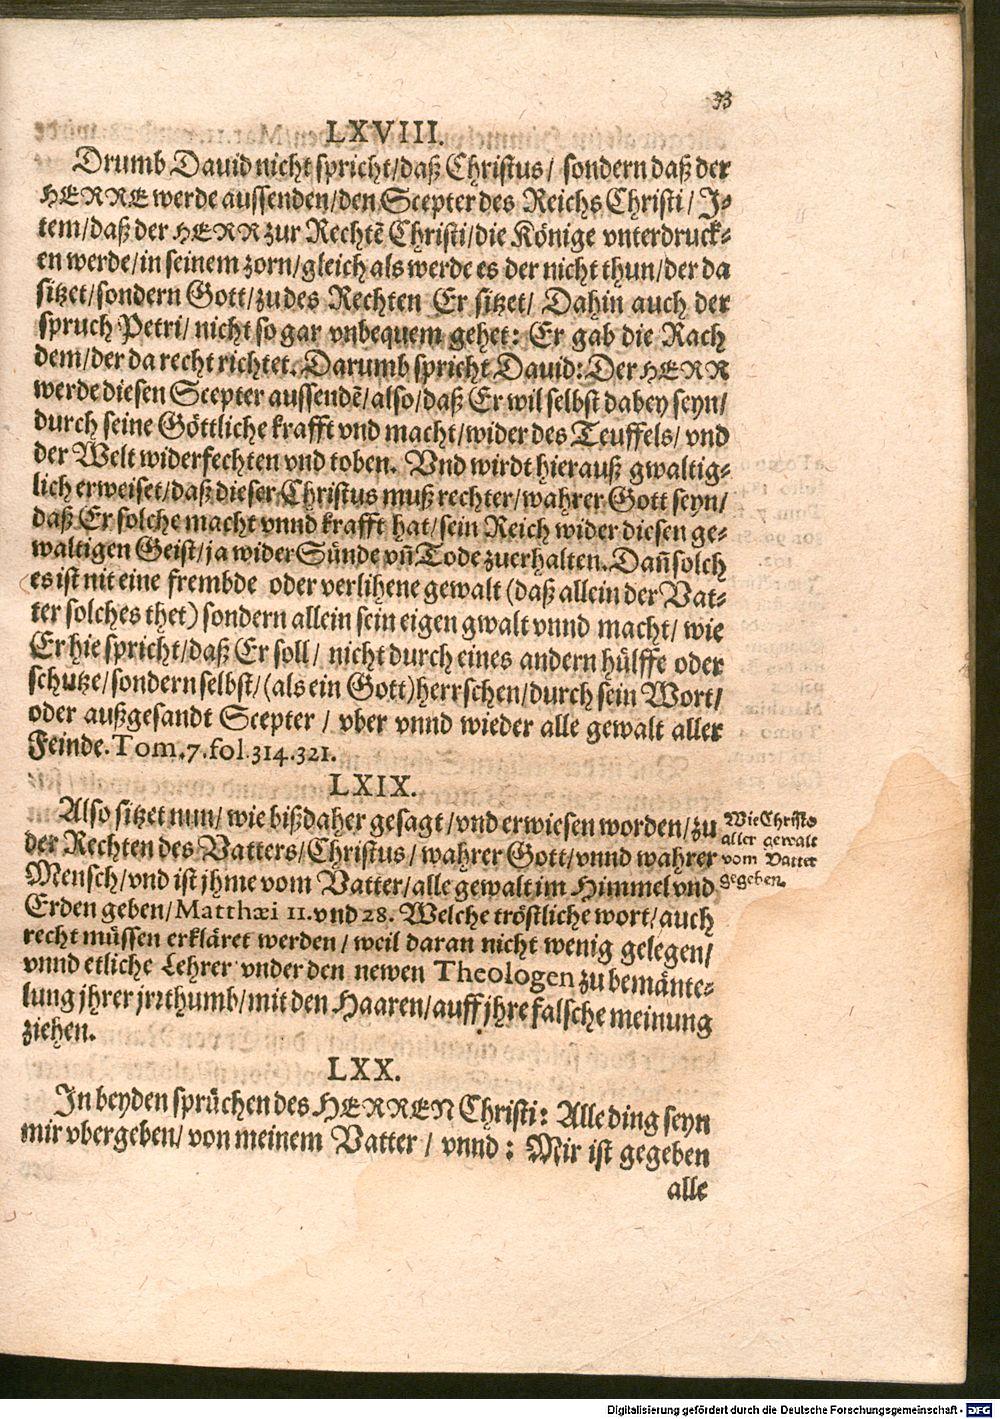 33
LXVIII.
Drumb Dauid nicht spricht/daß Christus/ sondern daß der
HERRE werde aussenden/den Scepter des Reichs Christi/ J-
tem/daß der HERR zur Rechtẽ Christi/die Könige vnterdruck-
en werde/in seinem zorn/gleich als werde es der nicht thun/der da
sitzet/sondern Gott/zu des Rechten Er sitzet/ Dahin auch der
spruch Petri/ nicht so gar vnbequem gehet: Er gab die Rach
dem/der da recht richtet. Darumb spricht Dauid: Der HERR
werde diesen Scepter aussendẽ/also/daß Er wil selbst dabey seyn/
durch seine Göttliche krafft vnd macht/wider des Teuffels/ vnd
der Welt widerfechten vnd toben. Vnd wirdt hierauß gwaltig-
lich erweiset/daß dieser Christus muß rechter/wahrer Gott seyn/
daß Er solche macht vnnd krafft hat/sein Reich wider diesen ge-
waltigen Geist/ja wider Sünde vñ Tode zuerhalten. Dañ solch
es ist nit eine frembde oder verlihene gewalt (daß allein der Vat-
ter solches thet) sondern allein sein eigen gwalt vnnd macht/ wie
Er hie spricht/daß Er soll/ nicht durch eines andern hülffe oder
schutze/sondern selbst/(als ein Gott)herrschen/durch sein Wort/
oder außgesandt Scepter / vber vnnd wieder alle gewalt aller
Feinde. Tom. 7. fol. 314. 321.
LXIX.
Also sitzet nun/ wie bißdaher gesagt/vnd erwiesen worden/zu
der Rechten des Vatters/Christus/ wahrer Gott/vnnd wahrer
Mensch/vnd ist jhme vom Vatter/alle gewalt im Himmel vnd
Erden geben/Matthæi 11. vnd 28. Welche tröstliche wort/auch
recht müssen erkläret werden/ weil daran nicht wenig gelegen/
vnnd etliche Lehrer vnder den newen Theologen zu bemänte-
lung jhrer jrrthumb/mit den Haaren/auff jhre falsche meinung
ziehen.
Wie Christo
aller gewalt
vom Vatter
gegeben.
LXX.
Jn beyden sprüchen des HERREN Christi: Alle ding seyn
mir vbergeben/ von meinem Vatter / vnnd: Mir ist gegeben
alle
Digitalisierung gefördert durch die Deutsche Forschungsgemeinschaft - DFG